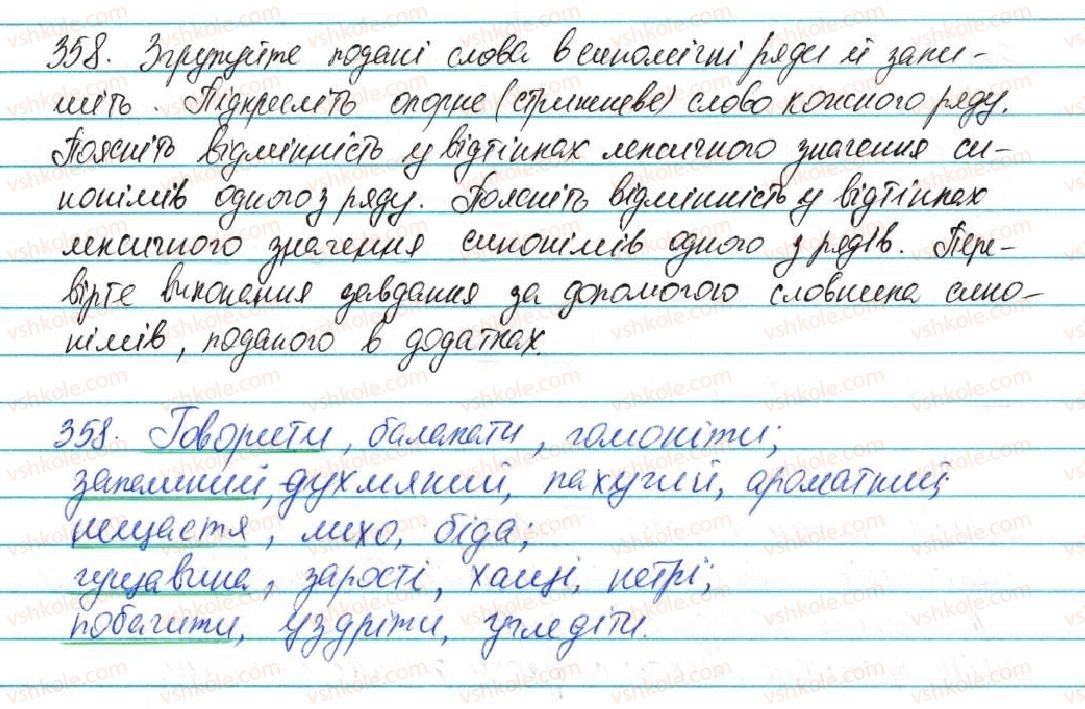 358. Згрупуйте подані слова в синомічні ряди й запи-
шіть. Підкресліть опорне (стрижневе) слово кожного ряду.
Поясніть відмінність у відтінках лексичного значення си-
нонімів одного з ряду. Поясніть відмінність у відтінках
лексичного значення синонімів одного з рядів. Пере-
вірте виконання завдання за допомогою словника сино-
німів, поданого в додатках.
358. Говорити, балакати, гомоніти;
запашний, духмяний, пахучий, ароматний;
нещастя, лихо, біда;
гущавина, зарості, хащі, нетрі;
побачити, уздріти, угледіти.